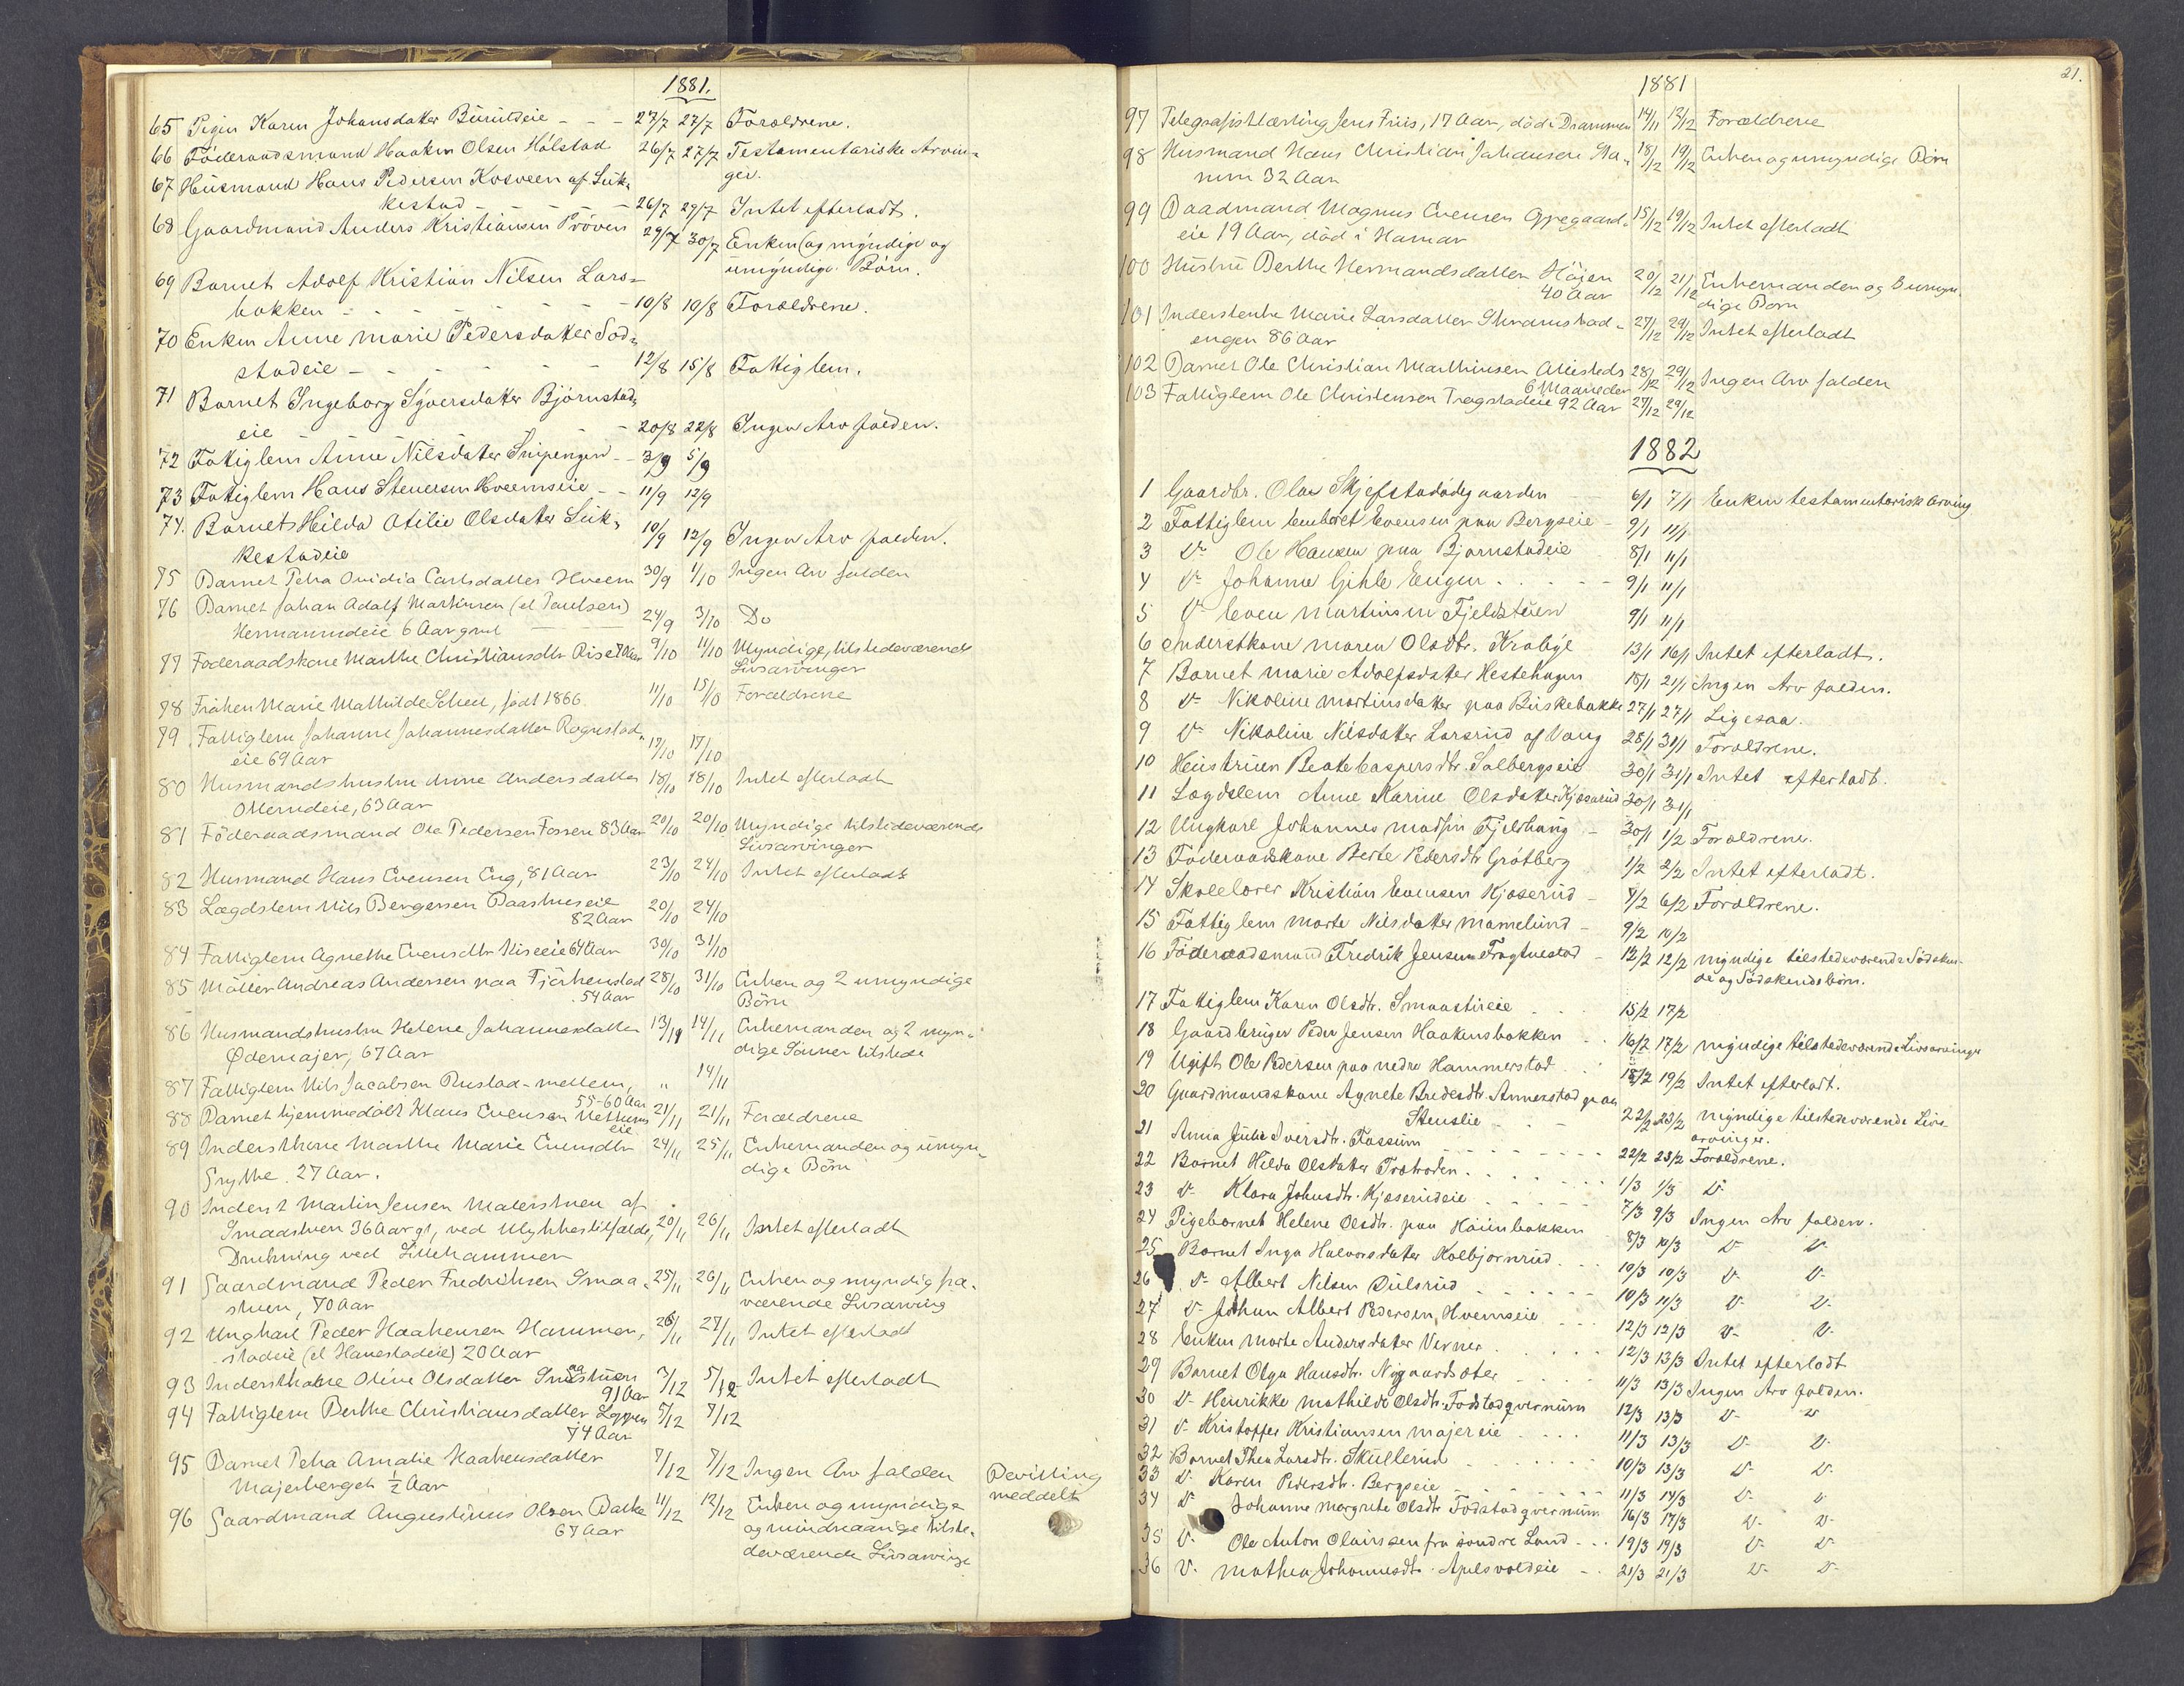 1881.
65 Pigen Karen Johansdatter - - - 27/7 27/7 Forældrene.
66 Föderaadsmand Haaken Olsen Hólstad 26/7 27/7 Testamentariske Arvin-
ger.
67 Húsmand Hans Pedersen Kosveen af Lük-
kestad - - - - - 26/7 29/7 Intet efterladt.
68 Gaardmand Anders Kristiansen Pröven 29/7 30/7 Enken (og mýndige og
úmýndige Börn.
69 Barnet Adolf Kristian Nilsen Lars-
bakken - - - - - 10/8 10/8 Forældrene.
70 Enken Anne Marie Pedersdatter Sod-
stadeie - - - - - 12/8 15/8 Fattiglem.
71 Barnet Ingeborg Syversdatter Björnstad-
eie - - - - - 20/8 22/8 Ingen Arv falden.
72 Fattiglem Anne Nilsdatter Snipengen - - 3/9 5/9
73 Fattiglem Hans Stenersen Hveemseie - - 11/9 12/9
74. Barnet Hilda Otilie Olsdatter Lük-
kestadeie 10/9 12/9 Ingen Arv falden.
75 Barnet Petra Ovidia Carlsdatter Hveem 30/9 1/10 Ingen Arv falden
76 Barnet Johan Adolf Martinsen (el Paulsen)
Hermannrudeie 6 Aar gml 24/9 3/10 Do
77 Föderaadskone Marthe Christiansdtr Rise 70 Aar 9/10 11/10 Myndige, tilstedeværende
Livsarvinger
78 Fröken Marie Mathilde Scheel, född 1866. 11/10 15/10 Forældrene
79 Fattiglem Johanne Johannesdatter Rognstad-
eie 69 Aar 17/10 17/10
80 Husmandshustru Anne Andersdatter 18/10 18/10 Intet efterladt
Ollerudeie, 63 Aar
81 Föderaadsmand Ole Pedersen Fossen 83 Aar 20/10 20/10 Myndige tilstedeværende
Livsarvinger
82 Husmand Hans Evensen Eng, 81 Aar 23/10 24/10 Intet efterladt
83 Lægdslem Nils Bergersen Baashuseie
82 Aar 20/10 24/10
84 Fattiglem Agnethe Evensdtr Kiseeie 64 Aar 30/10 31/10
85 Möller Andreas Andersen paa Fjörkenstad 28/10 31/10 Enken og 2 umyndige
54 Aar Börn
86 Husmandshustru Helene Johannesdatter 13/11 14/11 Enkemanden og 2 myn-
Ödemajer, 67 Aar dige Sönner tilstede
87 Fattiglem Nils Jacobsen Rustad-mellem, " 14/11
55-60 Aar
88 Barnet hjemmedöbt Klaus Evensen 21/11 21/11 Forældrene
eie
89 Inderstkone Marthe Marie Evensdtr 24/11 25/11 Enkemanden og umyn-
Grythe. 27 Aar. dige Börn
90 Inderst Martin Jensen Malerstuen af
Smaastuen 36 Aar gl, ved Ulykkestilfælde, 20/11 26/11 Intet efterladt
Drukning ved Lillehammer
91 Gaardmand Peder Fredriksen Smaa- 25/11 26/11 Enken og myndig fra-
stuen, 70 Aar værende Livsarving
92 Ungkarl Peder Haakensen Hammer- 26/11 27/11 Intet efterladt
stadeie (el Hanestadeie) 20 Aar
93 Inderstkone Oline Olsdatter Smaastuen 3/12 5/12 Intet efterladt
91 Aar
94 Fattiglem Berthe Christiansdatter Loppen 5/12 7/12
74 Aar
95 Barnet Petra Amalie Haakensdatter
Majerberget ½ Aar 7/12 7/12 Ingen Arv falden Bevilling
meddelt
96 Gaardmand Augustinus Olsen Bakke 11/12 12/12 Enken og myndige
67 Aar og mindreaarige tilste-
deværende Livsarvinge
21.
1881
97 Telegrafistlærling Jens Friis, 17 Aar, död i Drammen 14/11 12/12 Forældrene
98 Husmand Hans Christian Johansen Sta- 18/12 19/12 Enken og umyndige Börn
num 32 Aar
99 Baadmand Magnus Evensen Gjegaard- 15/12 19/12 Intet efterladt
eie 19 Aar, död i Hamar
100 Hústrú Berthe Hermandsdatter Höjen 20/12 21/12 Enkemanden og 3 umyn-
40 Aar dige Börn
101 Inderstenke Marie Larsdatter Skramstad- 27/12 29/12 Intet efterladt
engen 86 Aar
102 Barnet Ole Christian Mathinsen 28/12 29/12 Ingen Arv falden
6 Maaneder
103 Fattiglem Ole Christensen Trogstadeie 92 Aar 27/12 29/12
1882
1 Gaardbr. Olav Skjefstadödegaarden 6/1 7/1 Enken testamentarisk Arving
2 Fattiglem Embret Evensen paa Bergseie - 9/1 11/1
3 D- Ole Hansen paa Bjørnstadeie 8/1 11/1
4 D- Johanne Gihle Engen - - - - 9/1 11/1
5 D- Even Martinsen Fjeldstúen 9/1 11/1
6 Inderstkone Maren Olsdtr. Krabýe 13/1 16/1 Intet efterladt.
7 Barnet Marie Adolfsdatter Hestehagen 18/1 21/1 Ingen Arv falden.
8 D- Nikoline Martinsdatter paa Büskebakke 27/1 27/1 Ligesaa.
9 D- Nikoline Nilsdatter Larsrúd af Vang 28/1 31/1 Forældrene.
10 Hústrúen Beate Caspersdtr. Solbergseie 30/1 31/1 Intet efterladt.
11 Lægdslem Anne Karine Olsdatter Kjøserúd 30/1 31/1
12 Ungkarl Johannes Madsen Fjeldhaug - 30/1 1/2 Forældrene.
13 Föderaadskone Berte Pedersdtr Grötberg 1/2 2/2 Intet efterladt.
14 Skolelærer Kristian Evensen Kjøserúd - 4/2 6/2 Forældrene.
15 Fattiglem Marte Nilsdatter Mamelúnd - 9/2 10/2
16 Föderaadsmand Fredrik Jensen Frogtvestad - 12/2 12/2 Mýndige tilstedeværende Södsken-
de og Södskendsbörn.
17 Fattiglem Karen Olsdtr. Smaastúeie . . . 15/2 17/2
18 Gaardbrüger Peder Jensen Haakensbakken . . 16/2 17/2 Mýndige tilstedeværende Livsarvinger
19 Ugift Ole Pedersen paa nedre Hammerstad . . 18/2 19/2 Intet efterladt.
20 Gaardmandskone Agnete Bredesdtr. Annexstad
Stenslie - - 22/2 23/2 Mýndige tilstedeværende Livs-
arvinger.
21 Anna Júlie Iversdtr. Fossúm - - - - - 22/2 23/2 Forældrene.
22 Barnet Hilda Olsdatter . . . . . 1/3 1/3 D-
23 D- Klara Johnsdtr. Kjøserúdeie - - - 7/3 9/3 Ingen Arv falden.
24 Pigebarnet Helene Olsdtr. paa Haúnbakken . 8/3 10/3 D- D-
25 Barnet Inga Halvorsdatter Kolbjørnrúd . . . 10/3 10/3 D- D-
26 D- Albert Nilsen . . . . . 10/3 11/3 D- D-
27 D- Johan Albert Pedersen, Hvemseie . . . 12/3 12/3 D- D-
28 Enken Marte Andersdatter Verner . . . . 12/3 13/3 Intet efterladt
29 Barnet Olga Hansdtr. Nygaardsæter - - - 11/3 13/3 Ingen Arv falden.
30 D- Henrikke Mathilde Olsdtr. Fodstadqvernúm 12/3 13/3 D- D-
31 D- Kristoffer Kristiansen Majereie . . . . 11/3 13/3 D- D-
32 Barnet Thea Larsdtr. Skúllerúd . . . . . 10/3 13/3 D- D-
33 D- Karen Pedersdtr. Bergseie - - - - 11/3 14/3 D- D-
34 D- Johanne Margrete Olsdtr Fodstadqvernúm 16/3 17/3 D- D-
35 D- Ole Anton Olaússen fra søndre Land . . . 19/3 19/3 D- D-
36 D- Mathea Johannesdtr. Apelsvoldeie - . . 21/3 21/3 D- D-